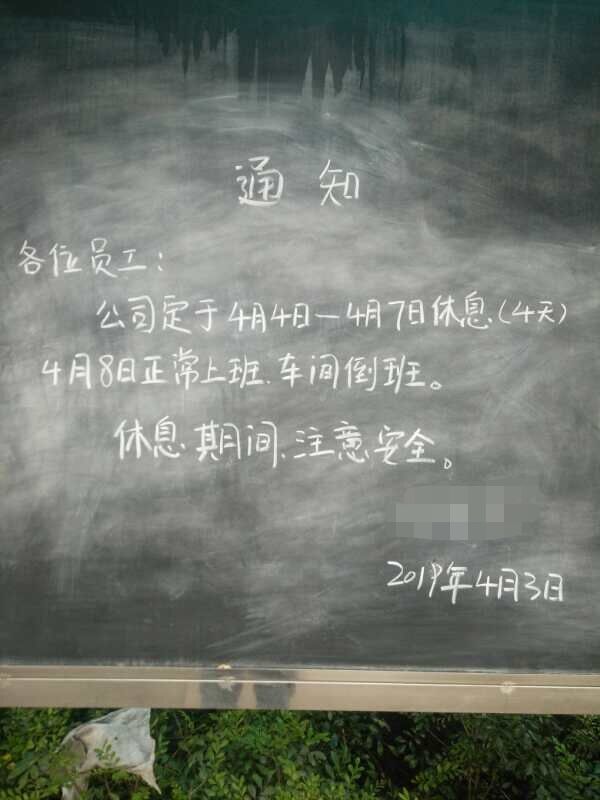 通知
各位员工：
公司定于4月4日—4月7日休息（4天）
4月8日正常上班、车间倒班。
休息期间、注意安全。
2019年4月3日